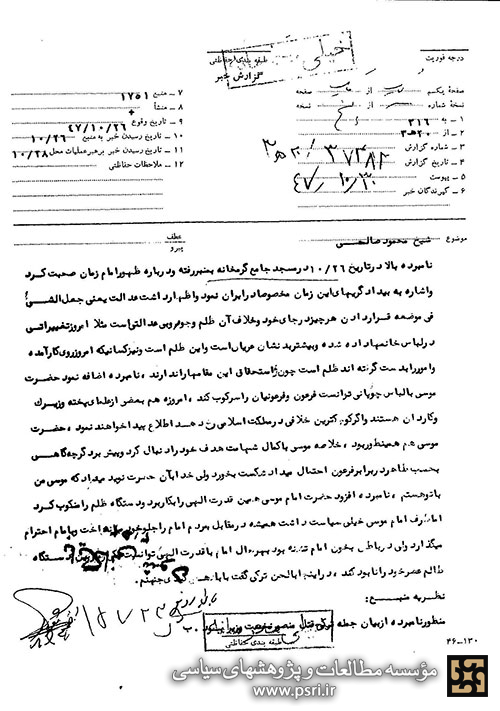 درجه فوریت
خیلی
طبقه بندی حفاظتی
گزارش خبر
صفحه یکم از صفحه
نسخه شماره از نسخه
۱ - به ۳۱۶
۲ - از ۲۰ ه ۳
۳ - شماره گزارش
۴ - تاریخ گزارش ۴۷/۱۰/۳۰
۵ - پیوست
۶ - گیرندگان خبر
۷ - منبع ۱۷۵۱
۸ - منشأ
۹ - تاریخ وقوع ۴۷/۱۰/۲۶
۱۰ - تاریخ رسیدن خبر به منبع ۱۰/۲۶
۱۱ - تاریخ رسیدن خبر به رهبر عملیات محل ۱۰/۲۸
۱۲ - ملاحظات حفاظتی
موضوع شیخ محمود صالحی
عطف
پیرو
نامبرده بالا در تاریخ ۱۰/۲۶ در مسجد جامع گرمخانه بمنبر رفته و درباره ظهور امام زمان صحبت کرد
و اشاره به بیدادگریهای این زمان مخصوصا در ایران نمود و اظهار داشت عدالت یعنی جعل الشیئی
فی موضعه قرار دادن هر چیز در جای خود و خلاف آن ظلم و جور و بی عدالتی است مثلا امروز تغییراتی
در لباس خانمها داده شده و بیشتر بدنشان عریان است و این ظلم است و نیز کسانیکه امروز روی کار آمده
و امور را بدست گرفته اند ظلم است چون استحقاق این مقامها را ندارند، نامبرده اضافه نمود حضرت
موسی با لباس چوپانی توانست فرعون و فرعونیان را سرکوب کند، امروزه هم بعضی از علمای پخته و زیرک
و کاردان هستند و اگر کوچکترین خلافی در مملکت اسلامی رخ دهد اطلاع پیدا خواهند نمود، حضرت
موسی هم همینطور بود، خلاصه موسی با کمال شهامت هدف خود را دنبال کرد و پیش برد گرچه گاهی
بحسب ظاهر در برابر فرعون احتمال میداد شکست بخورد ولی خدا بآن حضرت نوید میداد که موسی من
با تو هستم، نامبرده افزود حضرت امام موسی همین قدرت الهی را بکار برد و دستگاه ظلم را منکوب کرد
امام موسی خیلی سیاست داشت همیشه در مقابل مردم امام را جلو خود و بامام احترام
میگذارد ولی در باطن بخون امام تشنه بود بهر حال امام با قدرت الهی توانست دستگاه
ظالم عصر خود را نابود کند، در اینجا ابوالحسن ترکی گفت جهنم.
نظریه منبع:
منظور نامبرده از بیان جمله
طبقه بندی حفاظتی
۴۶-۱۳۰
مؤسسه مطالعات و پژوهشهای سیاسی
www.psri.ir